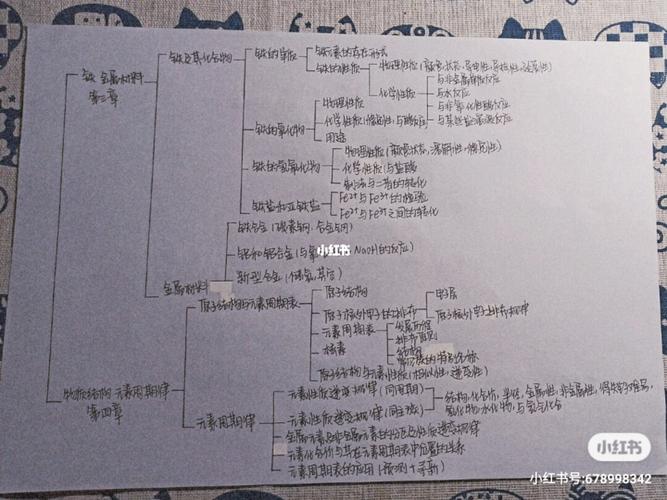 铁 金属材料
第三章
铁及其化合物
铁的单质
铁元素的存在形式
铁的性质
物理性质(颜色,状态,导电性,导热性,延展性)
化学性质
与非金属单质反应
与水反应
与非氧化性酸反应
与某些盐溶液反应
铁的氧化物
物理性质
化学性质(稳定性,与酸反应)
用途
铁的氢氧化物
物理性质(颜色状态,溶解性,稳定性)
化学性质(与盐酸
制法与二者的转化
铁盐和亚铁盐
Fe²⁺与Fe³⁺的检验
Fe²⁺与Fe³⁺之间的转化
金属材料
铁合金(碳素钢,合金钢)
铝和铝合金(与氧 NaOH的反应)
新型合金(储氢,其它)
物质结构 元素周期律
第四章
原子结构与元素周期表
原子结构
原子核外电子的排布
电子层
原子核外电子排布规律
元素周期表
发展历程
编排原则
结构
核素
原子结构与元素性质(相似性,递变性)
元素周期律
元素性质递变规律(同周期)
元素性质递变规律(同主族)
结构,化合价,半径,金属性,非金属性,得失电子难易,
氧化物水化物,与氢气化合
金属元素与非金属元素的分区及性质递变规律
元素化合价与其在元素周期表中位置的关系
元素周期表的应用(预测+寻新)
小红书
小红书
小红书号:678998342